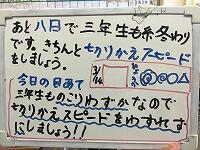 あと八日で三年生も終わり
です。きちんと
七刀りかえスピード
をしましょう。
3/14
今日の目あて
三年生ものこりわずかなので
七刀りかえスピードをわすれず
にしましょう!!